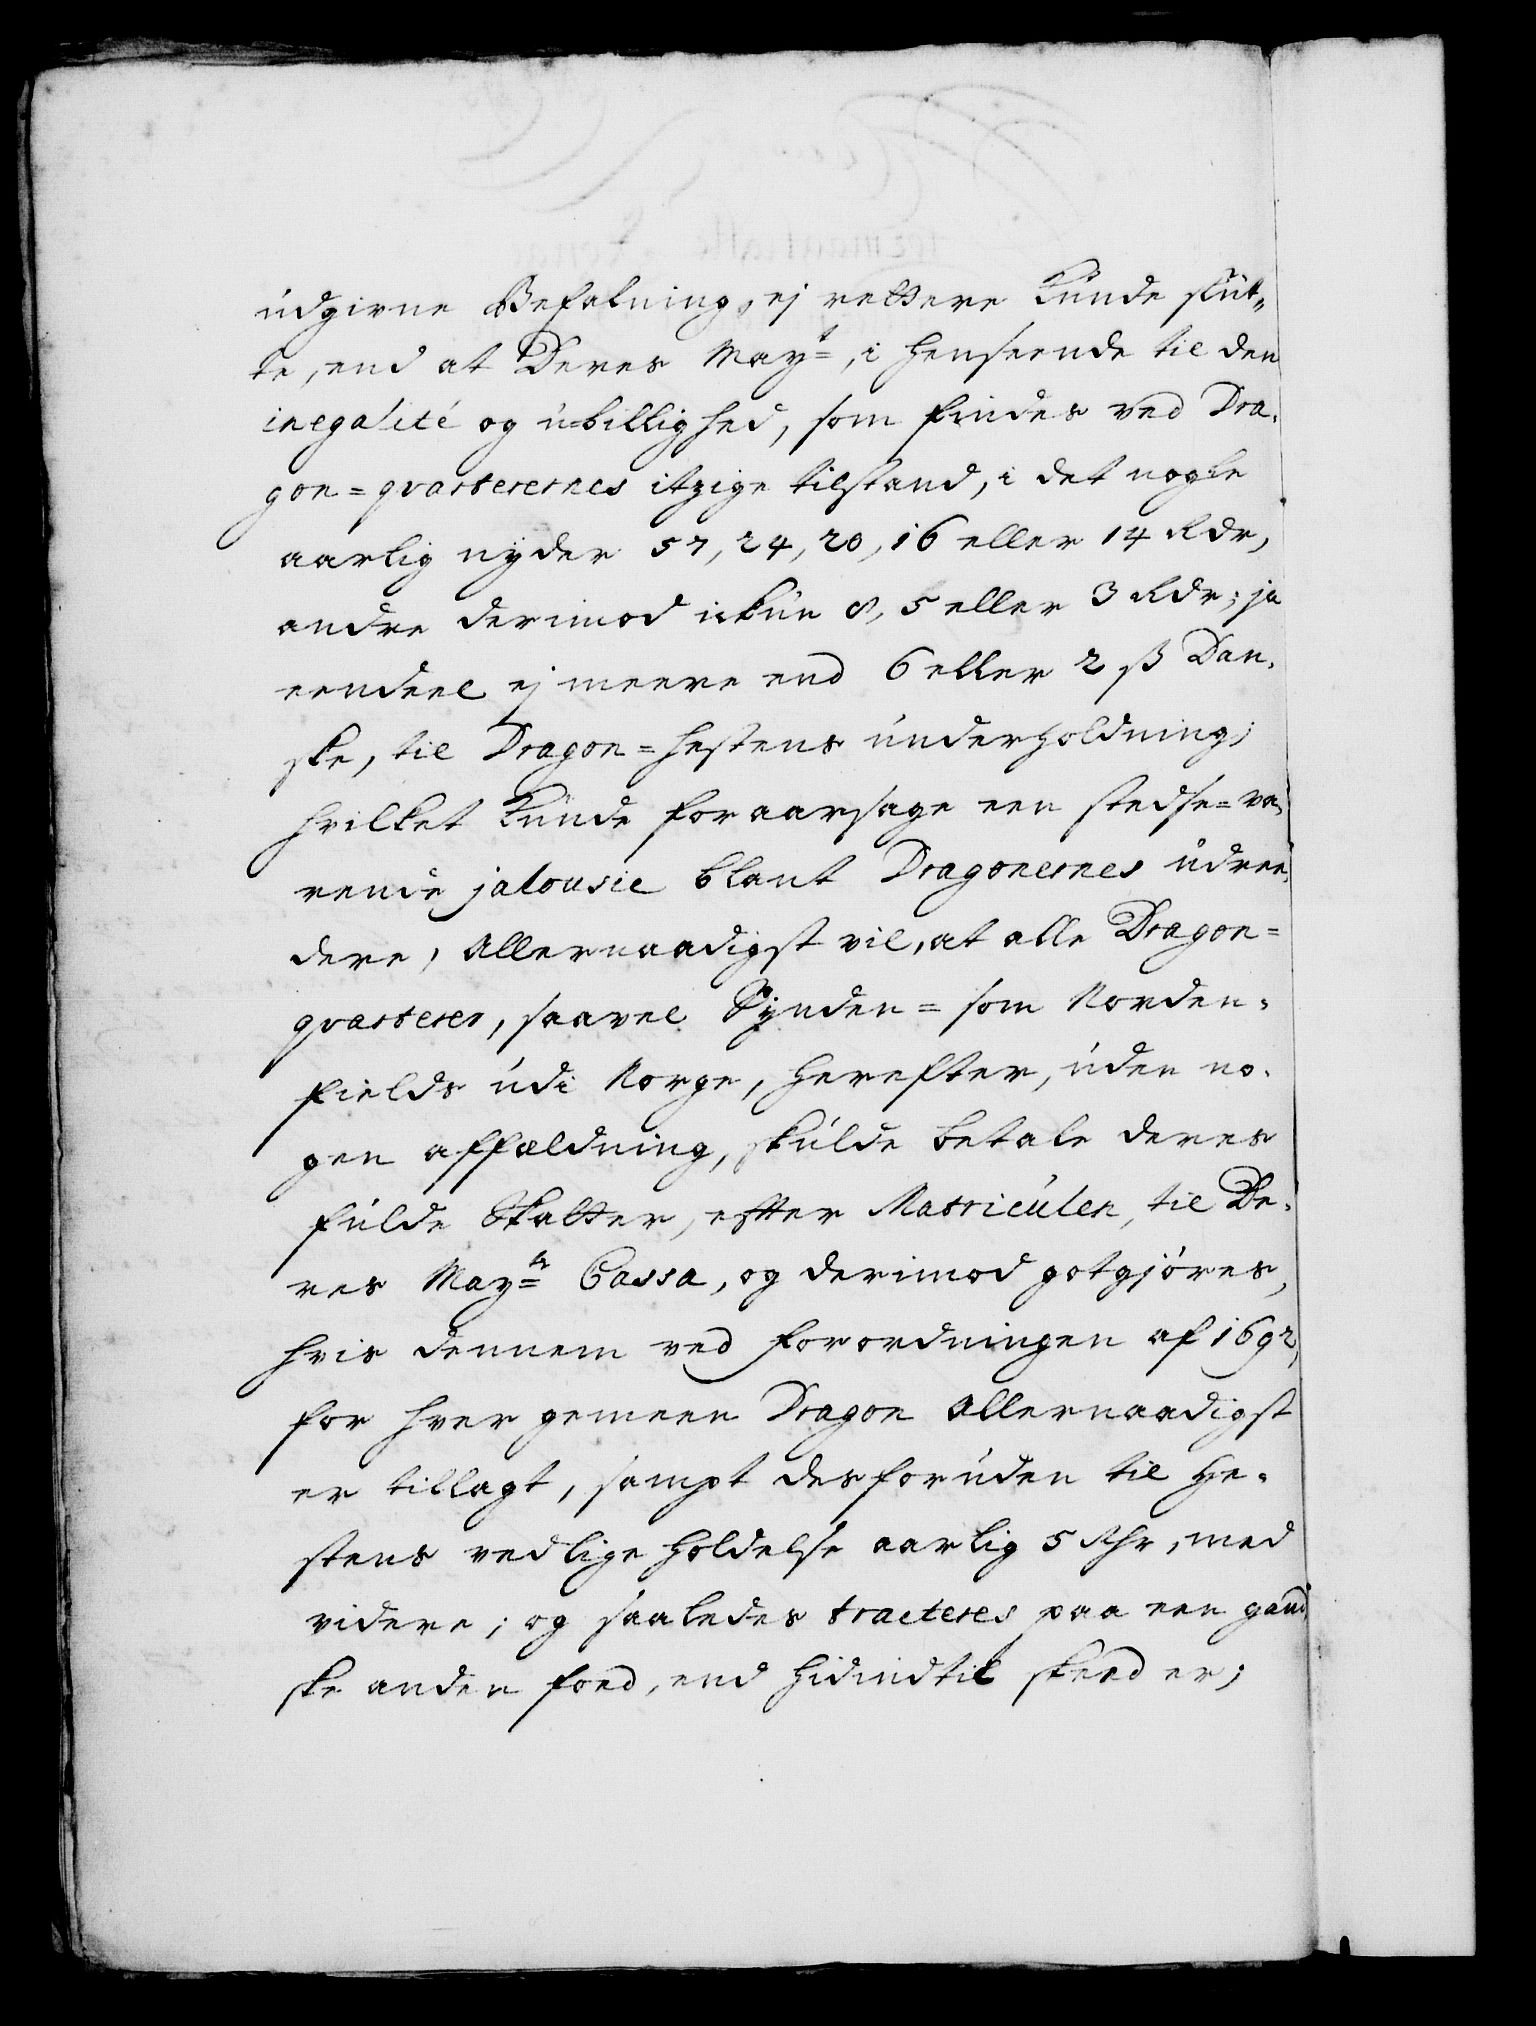 udgivne Befalning, ej rettere kunde slut-
te, end at Deres May:t, i henseende til den
inegalité og u-billighed, som findes ved Dra-
gon=qvarterernes itzige tilstand, i det nogle
aarlig nyder 57, 24, 20, 16 eller 14 Rdr,
andre derimod ikkun 8, 5 eller 3 Rdr; ja
eendeel ej meere end 6 eller 2 ß Dan-
ske, til Dragon=hestens underholdning;
hvilket kunde foraarsage een stedse=va-
rende jalousie blant Dragonernes udree-
dere, Allernaadigst vil, at alle Dragon=
qvarterer, saavel Synden= som Norden-
fields udi Norge, herefter, uden no-
gen affældning, skulde betale deres
fulde Skatter, efter Matriculen, til De-
res May:ts Cassa, og derimod gotgjøres,
hvis dennem ved forordningen af 1692,
for hver gemeen Dragon Allernaadigst
er tillagt, sampt desforuden til He-
stens vedlige holdelse aarlig 5 Rdr, med
videre; og saaledes tracteres paa een gand-
ske anden foed, end hidindtil skeed er;